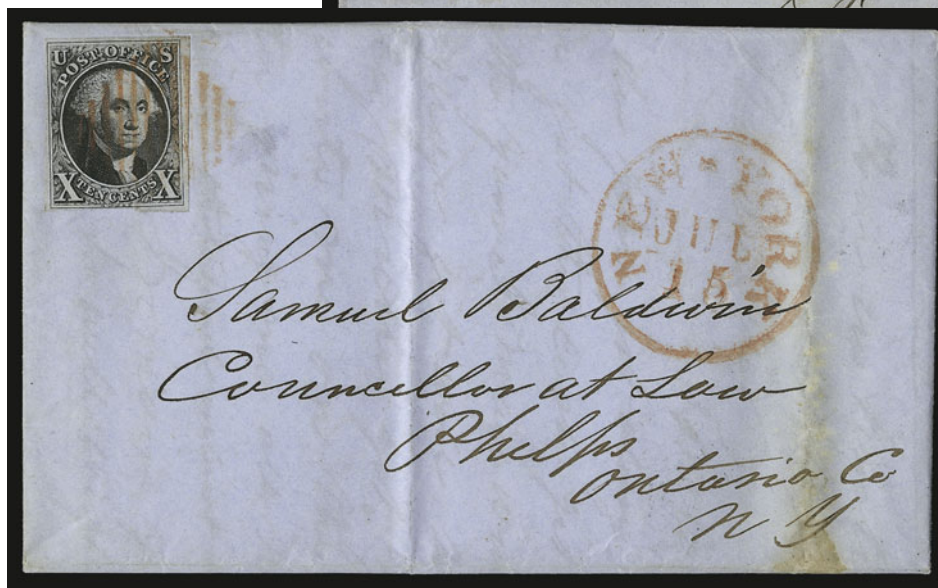 U S
POST OFFICE
X TEN CENTS X
NEW YORK
JUL
15
Samuel Baldwin
Councellor at Law
Phelps
Ontario Co
N Y